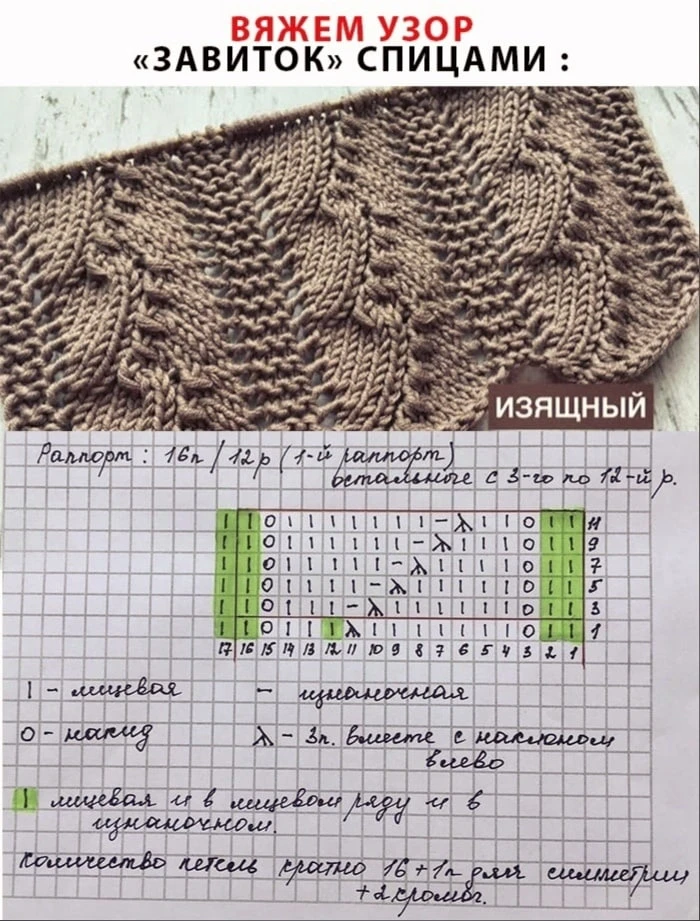 ВЯЖЕМ УЗОР
«ЗАВИТОК» СПИЦАМИ :
ИЗЯЩНЫЙ
Раппорт: 16п/12р (1-й раппорт)
остальные с 3-го по 12-й р.
I I O I I I I I I I – λ I I O I I 11
I I O I I I I I I – λ I I I O I I 9
I I O I I I I I – λ I I I I O I I 7
I I O I I I I – λ I I I I I O I I 5
I I O I I I – λ I I I I I I O I I 3
I I O I I I λ I I I I I I I O I I 1
17 16 15 14 13 12 11 10 9 8 7 6 5 4 3 2 1
I – лицевая – изнаночная
O – накид λ – 3п. вместе с наклоном
влево
I лицевая и в лицевом ряду и в
изнаночном.
Количество петель кратно 16+1п для симметрии
+2 кромоч.